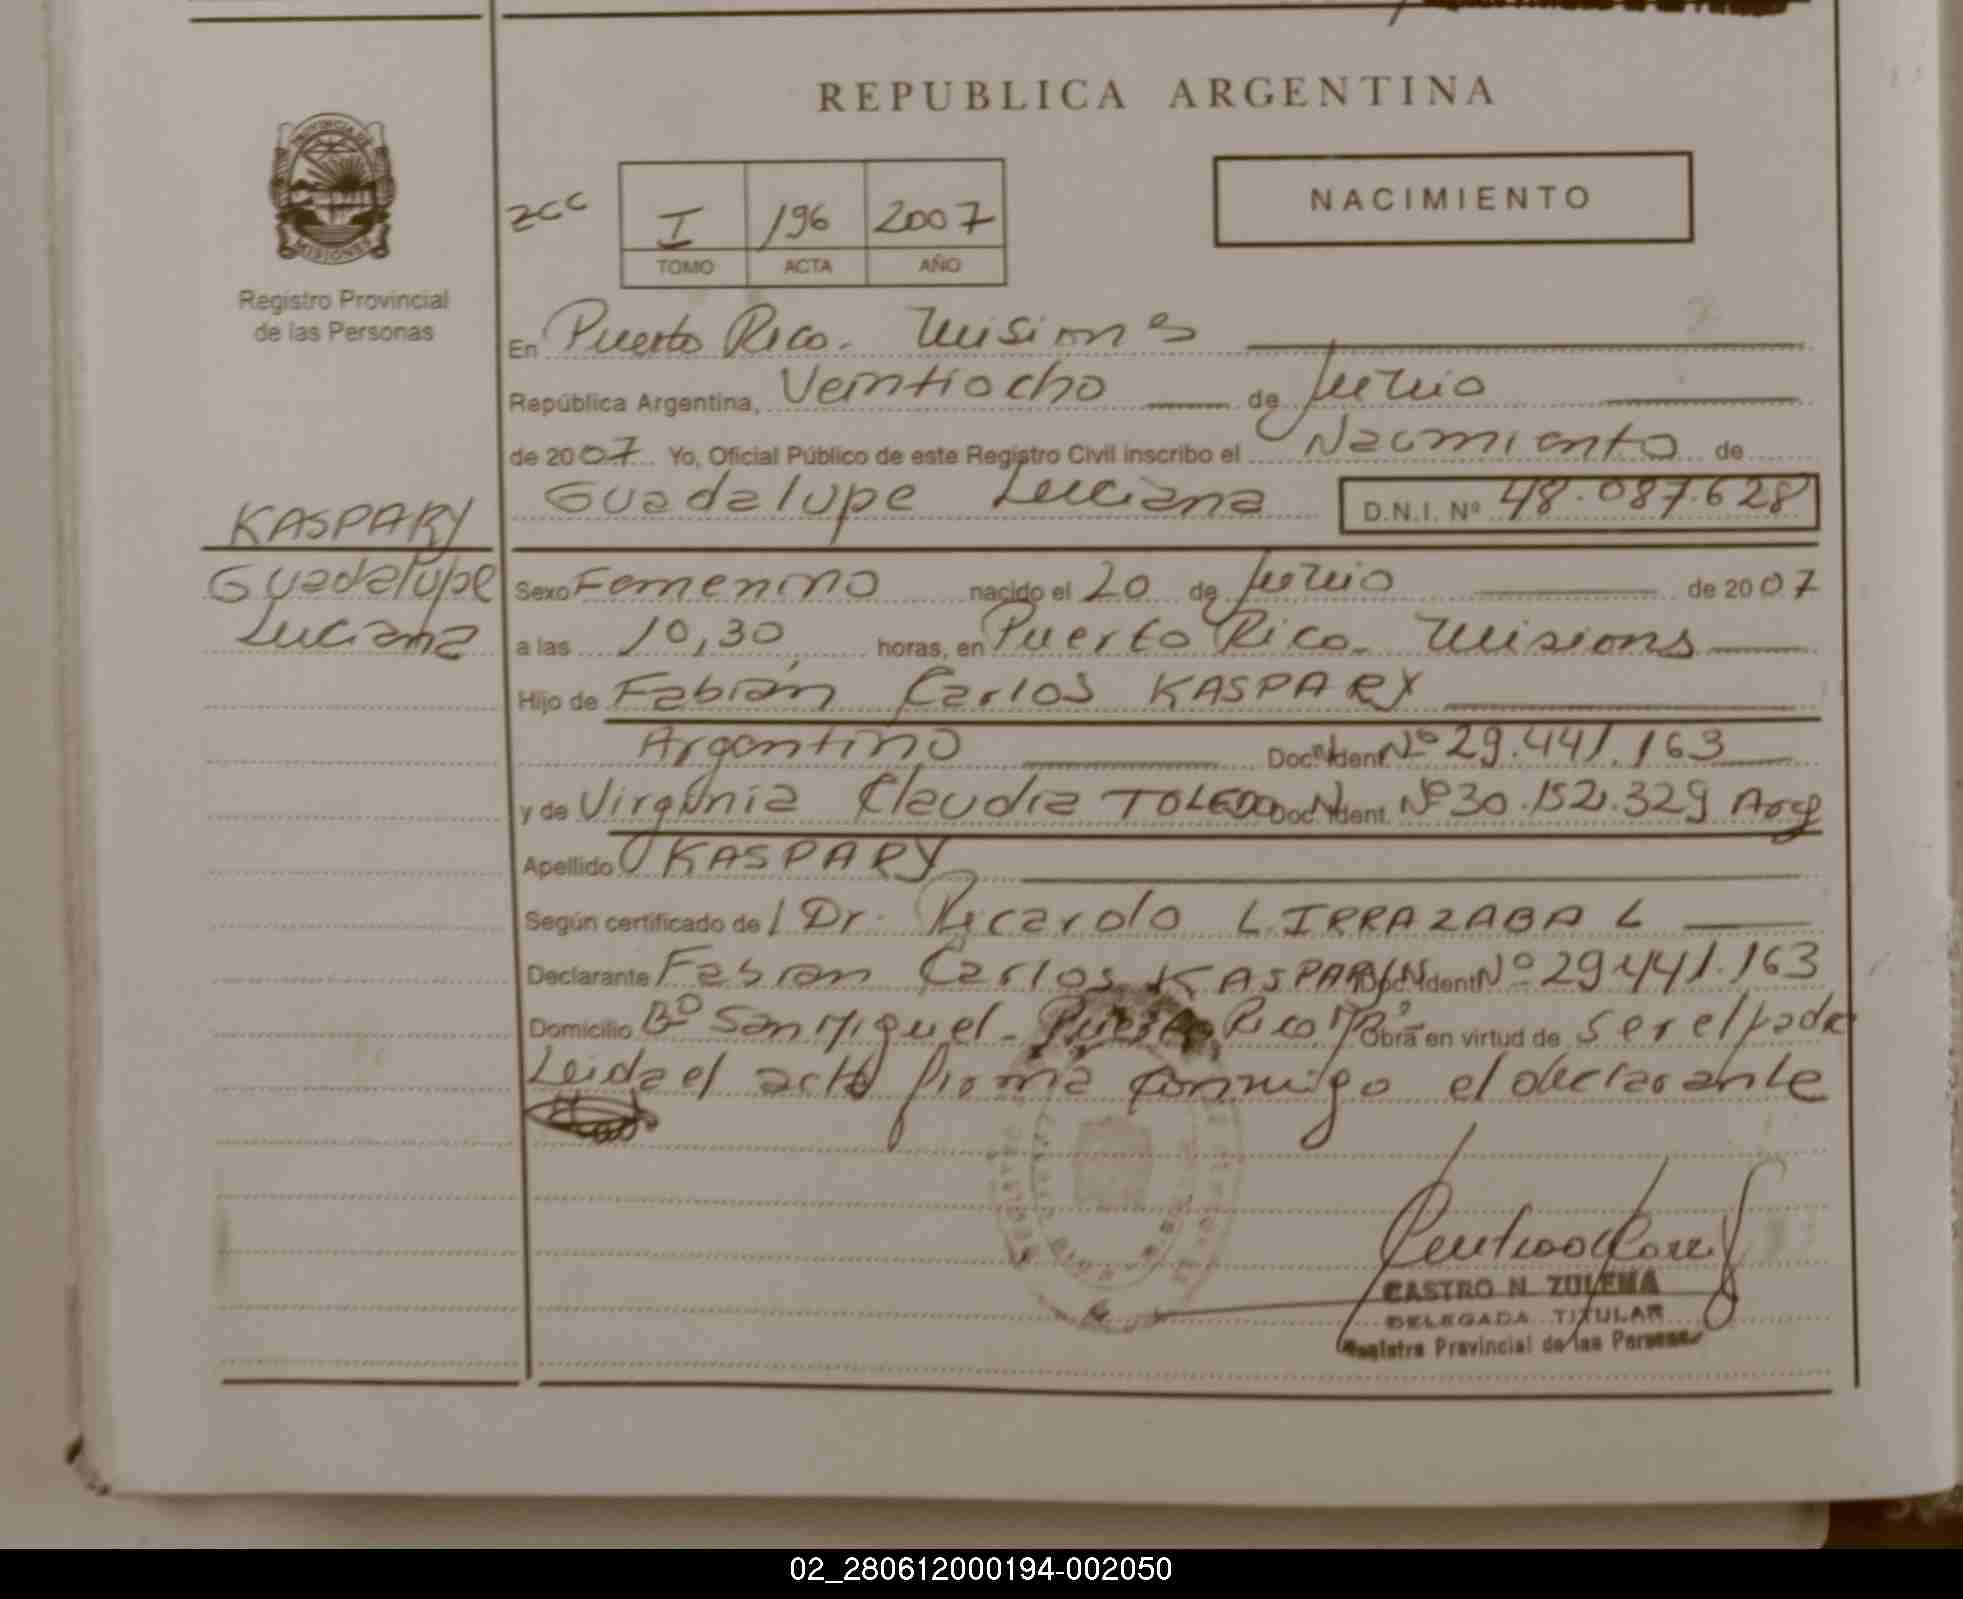 REPUBLICA ARGENTINA
PROVINCIA DE
MISIONES
Registro Provincial
de las Personas
2CC
I 196 2007
TOMO ACTA AÑO
NACIMIENTO
En Puerto Rico. Misiones
República Argentina, Veintiocho de Junio
de 2007 Yo, Oficial Público de este Registro Civil inscribo el Nacimiento de
Guadalupe Luciana D.N.I. Nº 48.087.628
KASPARY
Guadalupe
Luciana
Sexo Femenino nacido el 20 de Junio de 2007
a las 10,30, horas, en Puerto Rico. Misiones
Hijo de Fabián Carlos KASPARY
Argentino Doc. Ident. Nº 29.441.163
y de Virginia Claudia TOLEDO Doc. Ident. Nº 30.152.329 Arg
Apellido KASPARY
Según certificado de Dr. Ricardo LIRRAZABAL
Declarante Fabian Carlos KASPARY Doc. Ident. Nº 29.441.163
Domicilio Bº San Miguel - Puerto Rico. Obra en virtud de ser el padre
Leida el acta firma conmigo el declarante
CASTRO N. ZULEMA
DELEGADA TITULAR
Registro Provincial de las Personas
02_280612000194-002050